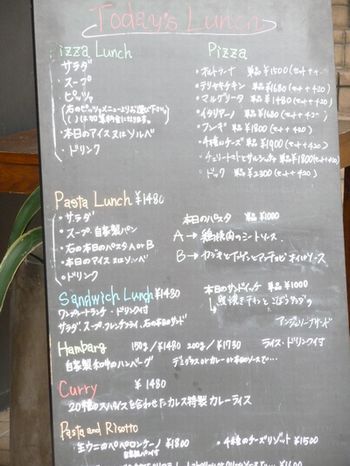 Today's Lunch
Pizza Lunch
・サラダ
・スープ
・ピッツァ
(右のピッツァメニューよりお選び下さい)
・本日のアイス又はソルベ
・ドリンク
Pizza
・オルトラーナ 単品¥1500(セット+
・テリヤキチキン 単品¥1680(セット+420)
・マルゲリータ 単品¥1480(セット+420)
・イタリアーノ 単品¥1680(セット+420)
・フンギ 単品¥1800(セット+420)
・4種のチーズ 単品¥1900(セット+420)
・チェリートマトとサルシッチャ 単品¥1800(セット+420)
・ドック 単品¥2300(セット+420)
Pasta Lunch ¥1480
・サラダ
・スープ 自家製パン
・右の本日のパスタA or B
・本日のアイス又はソルベ
・ドリンク
本日のパスタ 単品¥1000
A → 鶏挽肉のミートソース
B → カジキとアンチョビ オイルソース
Sandwich Lunch ¥1480
ワンプレートランチ・ドリンク付
サラダ・スープ・フレンチフライ・右の本日サンド
本日のサンドイッチ 単品¥1000
Hambarg 150g/¥1480 200g/¥1730 ライス・ドリンク付
自家製和牛のハンバーグ デミグラス or カレー or 本日ソースで…
Curry ¥1480
20種のスパイスを合わせたカレス特製カレーライス
Pasta and Risotto
・生ウニのペペロンチーノ ¥1800
自家製パン付
・4種のチーズリゾット ¥1500